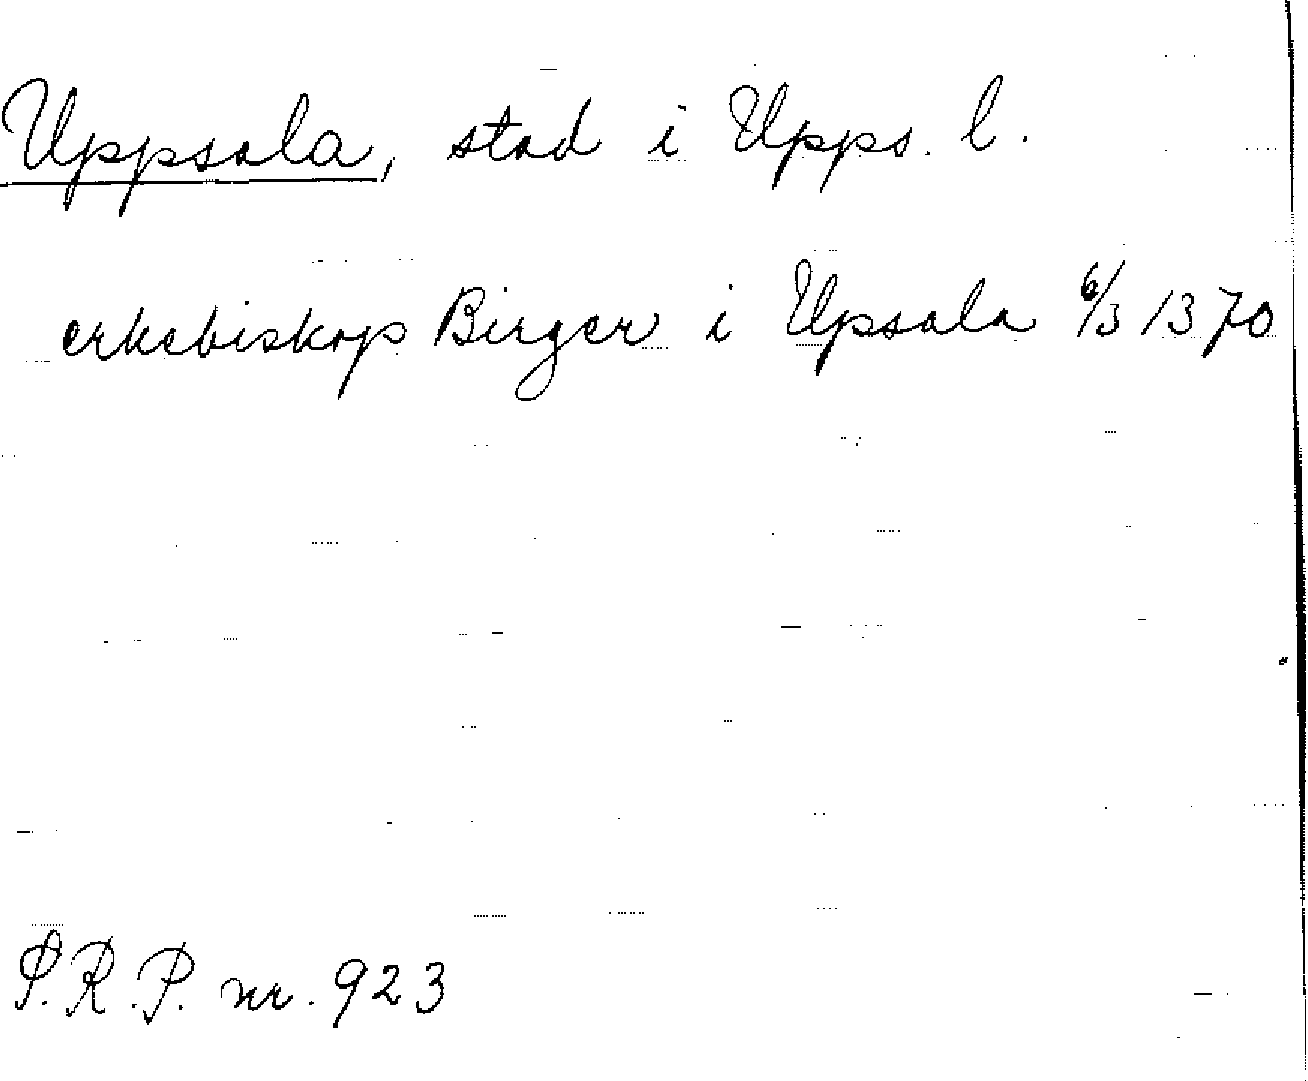 Uppsala, stad i Upps. l.
erkebiskop Birger i Upsala 6/3 1370
S.R.P. nr. 923